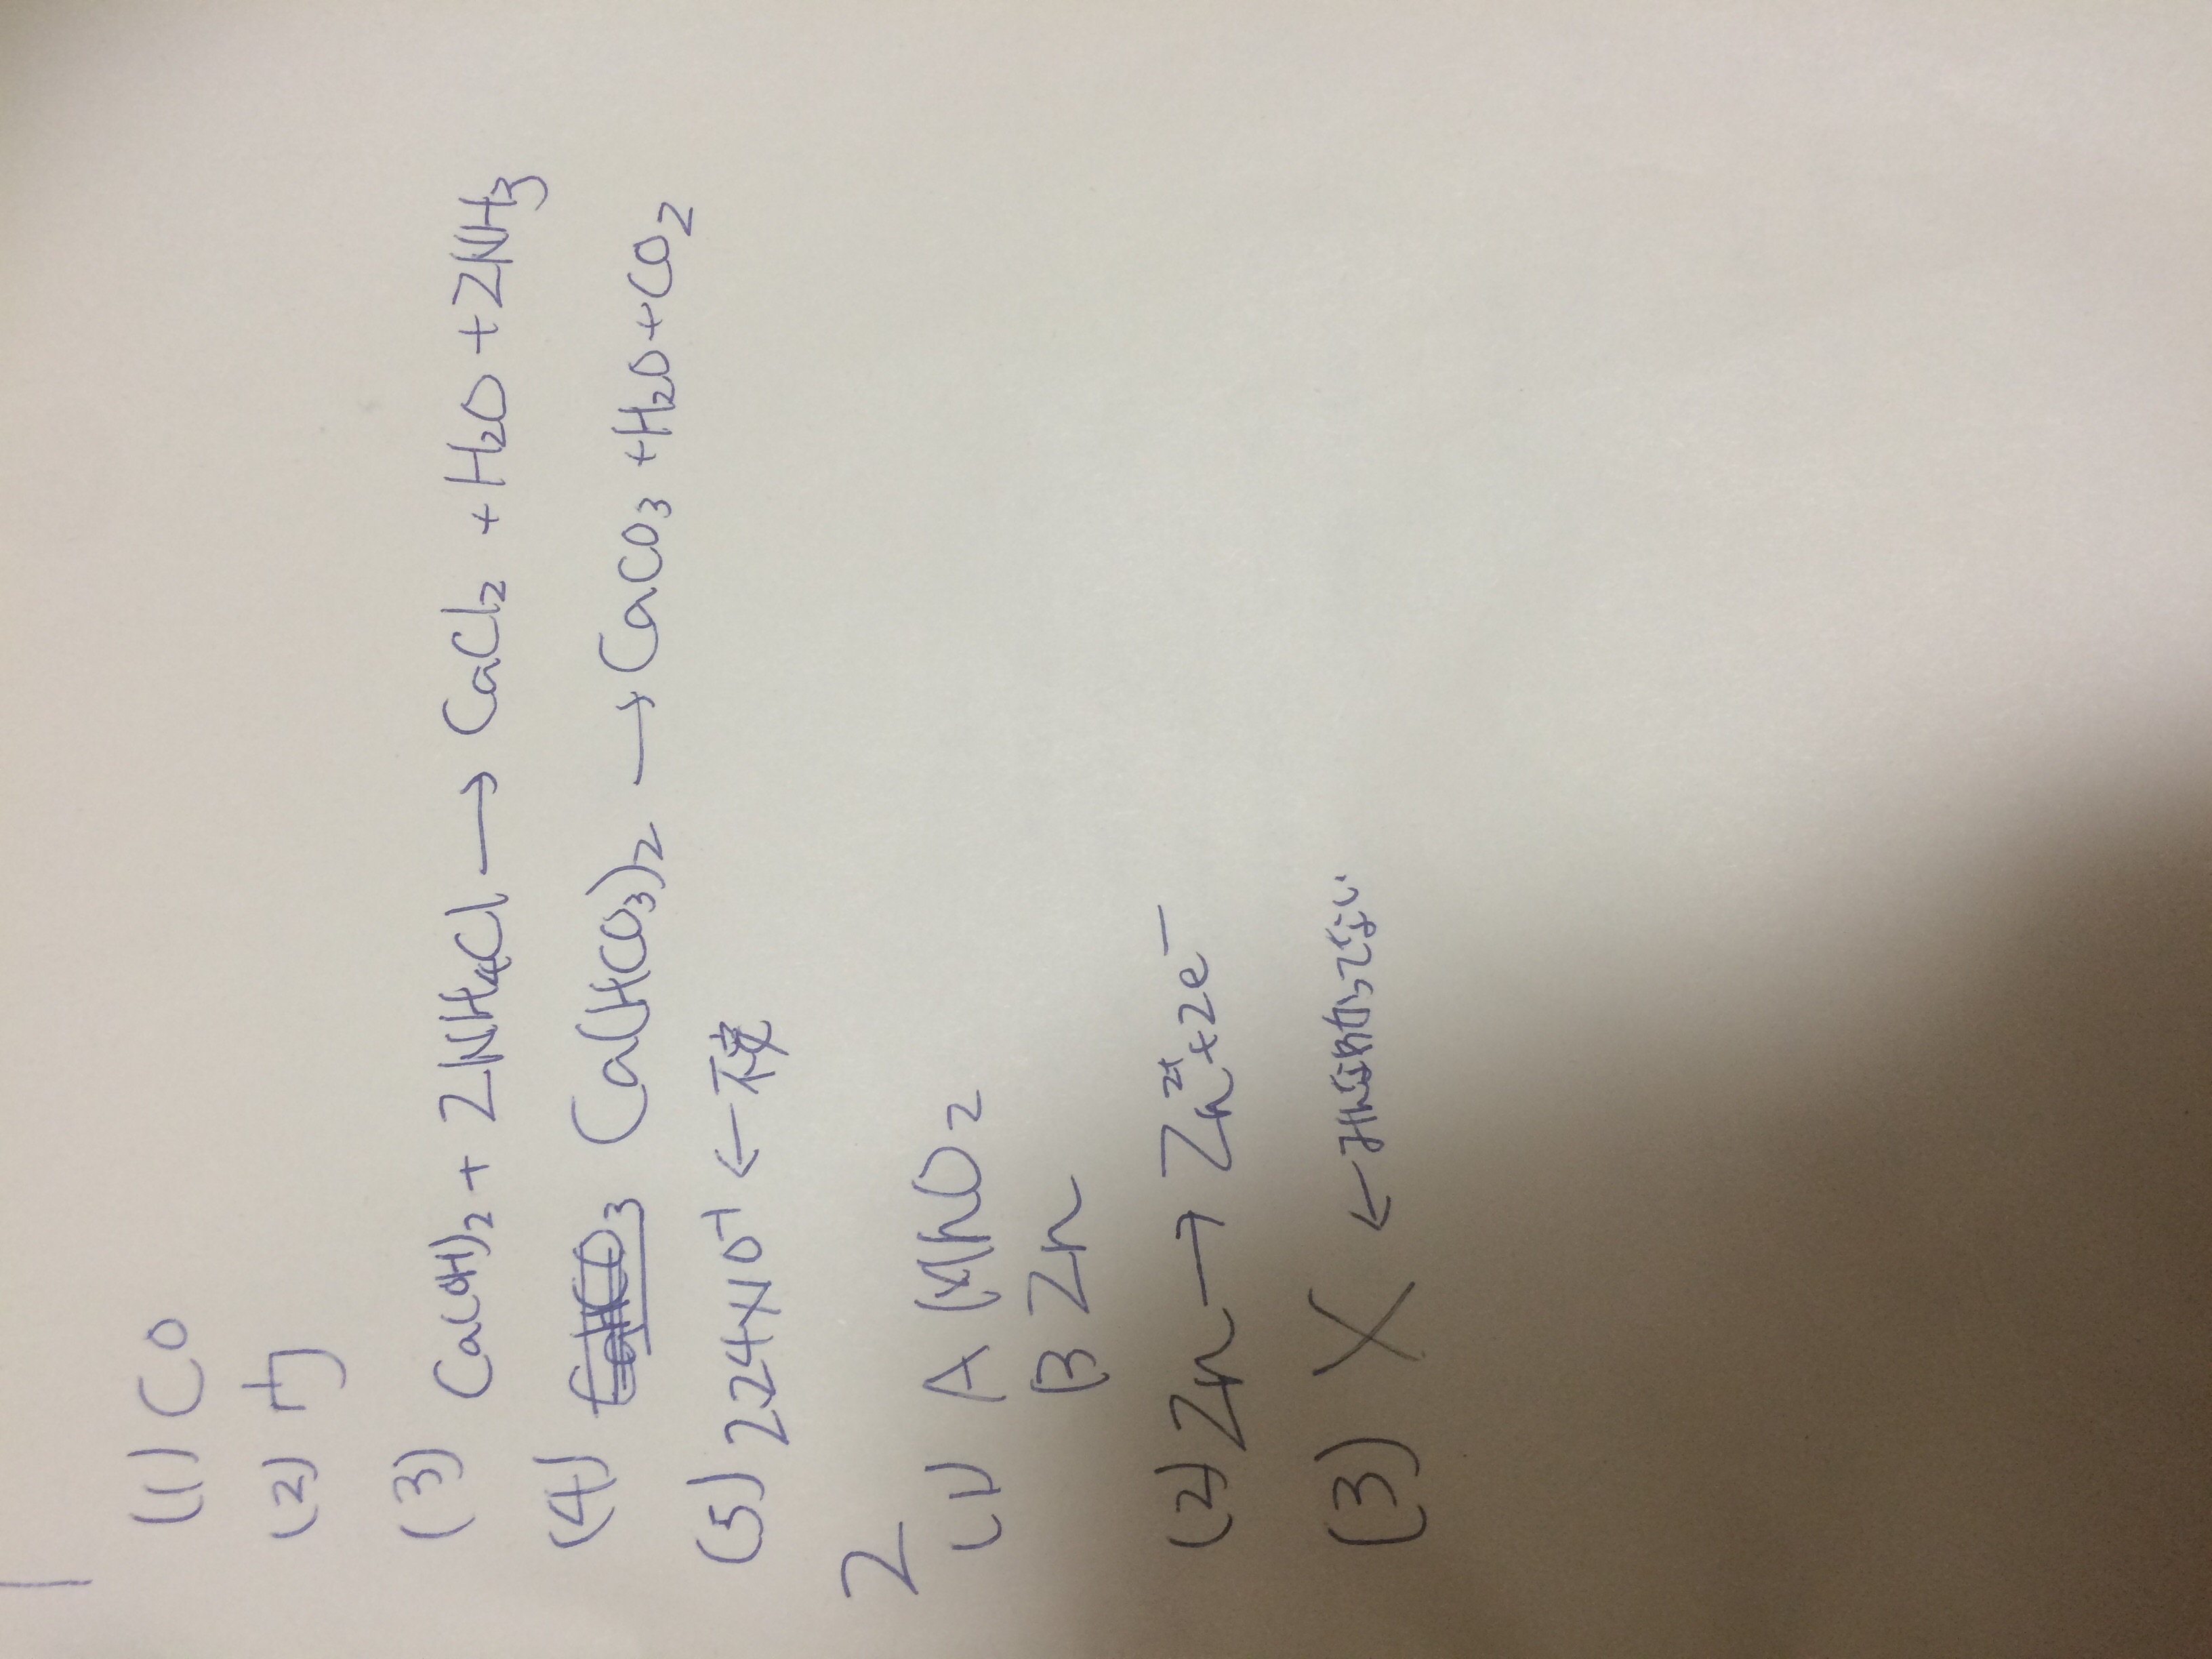 1
(1) CO
(2) サ
(3) Ca(OH)₂ + 2NH₄Cl → CaCl₂ + H₂O + 2NH₃
(4) Ca(HCO₃)₂ → CaCO₃ + H₂O + CO₂
(5) 224×10⁻¹ ←不安
2
(1) A MnO₂
B Zn
(2) Zn → Zn²⁺ + 2e⁻
(3) X ←